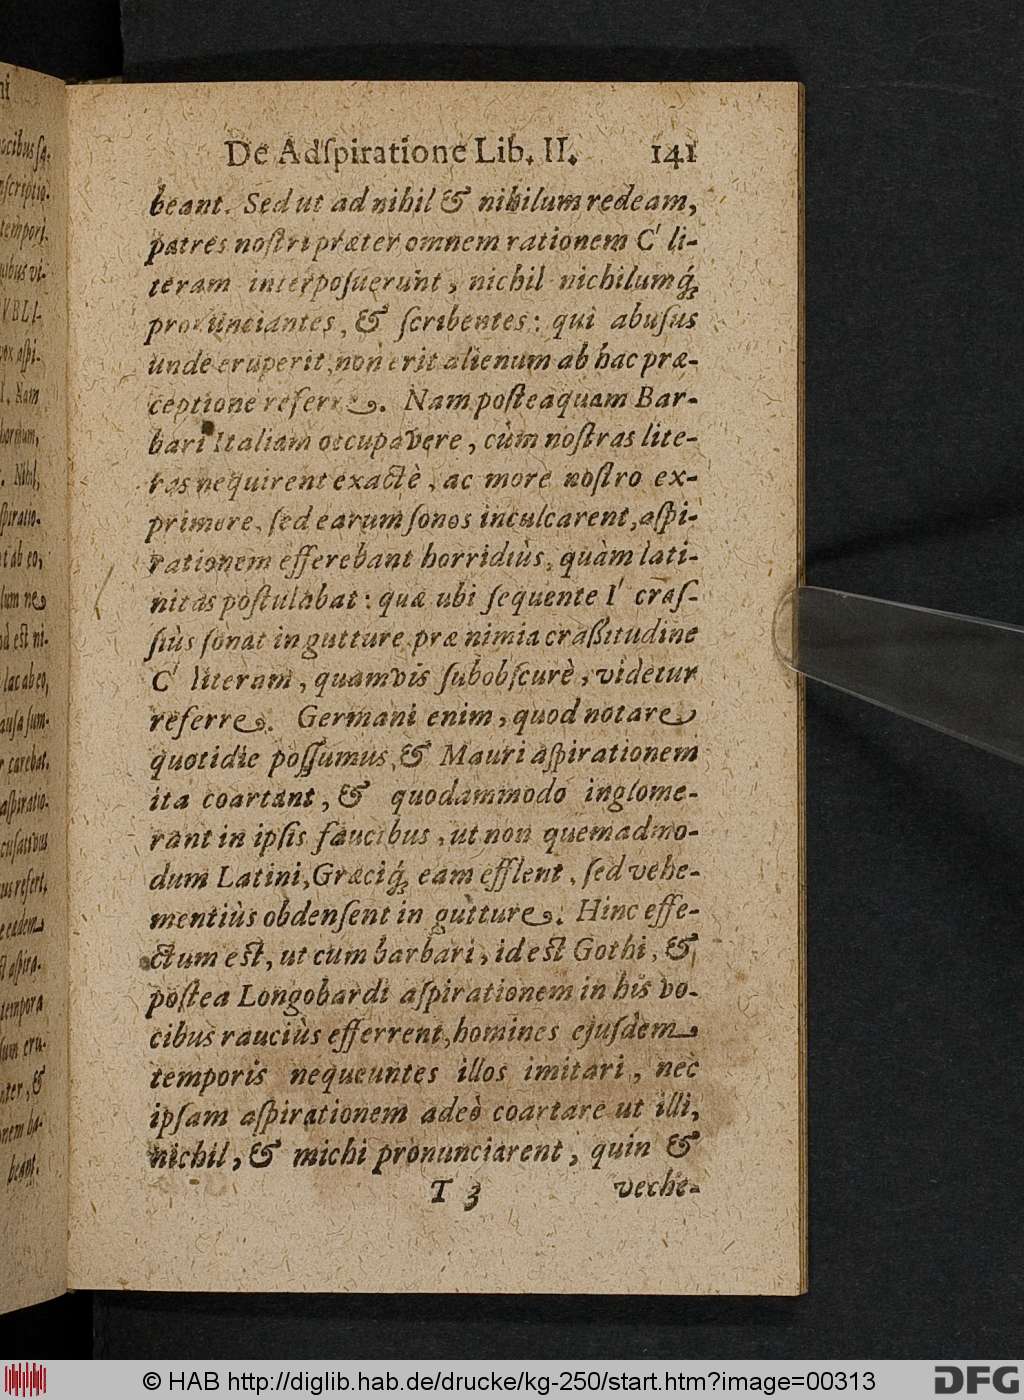 De Adſpiratione Lib. II. 141
beant. Sed ut ad nihil & nihilum redeam,
patres noſtri præter omnem rationem C' li-
teram interpoſuerunt, nichil nichilumq́;
pronunciantes, & ſcribentes: qui abuſus
unde eruperit, non erit alienum ab hac præ-
ceptione referre. Nam poſteaquam Bar-
bari Italiam occupavere, cùm noſtras lite-
ras nequirent exactè, ac more noſtro ex-
primere, ſed earum ſonos inculcarent, aſpi-
rationem efferebant horridiùs, quàm lati-
nitas poſtulabat: quæ ubi ſequente I' craſ-
ſiùs ſonat in gutture præ nimia craßitudine
C' literam, quamvis ſubobſcurè, videtur
referre. Germani enim, quod notare
quotidie poſſumus, & Mauri aſpirationem
ita coartant, & quodammodo inglome-
rant in ipſis faucibus, ut non quemadmo-
dum Latini, Græciq́; eam efflent, ſed vehe-
mentiùs obdenſent in gutture. Hinc effe-
ctum eſt, ut cum barbari, id eſt Gothi, &
poſtea Longobardi aſpirationem in his vo-
cibus rauciùs efferrent, homines ejuſdem
temporis nequeuntes illos imitari, nec
ipſam aſpirationem adeò coartare ut illi,
nichil, & michi pronunciarent, quin &
T 3 veche-
© HAB http://diglib.hab.de/drucke/kg-250/start.htm?image=00313
DFG